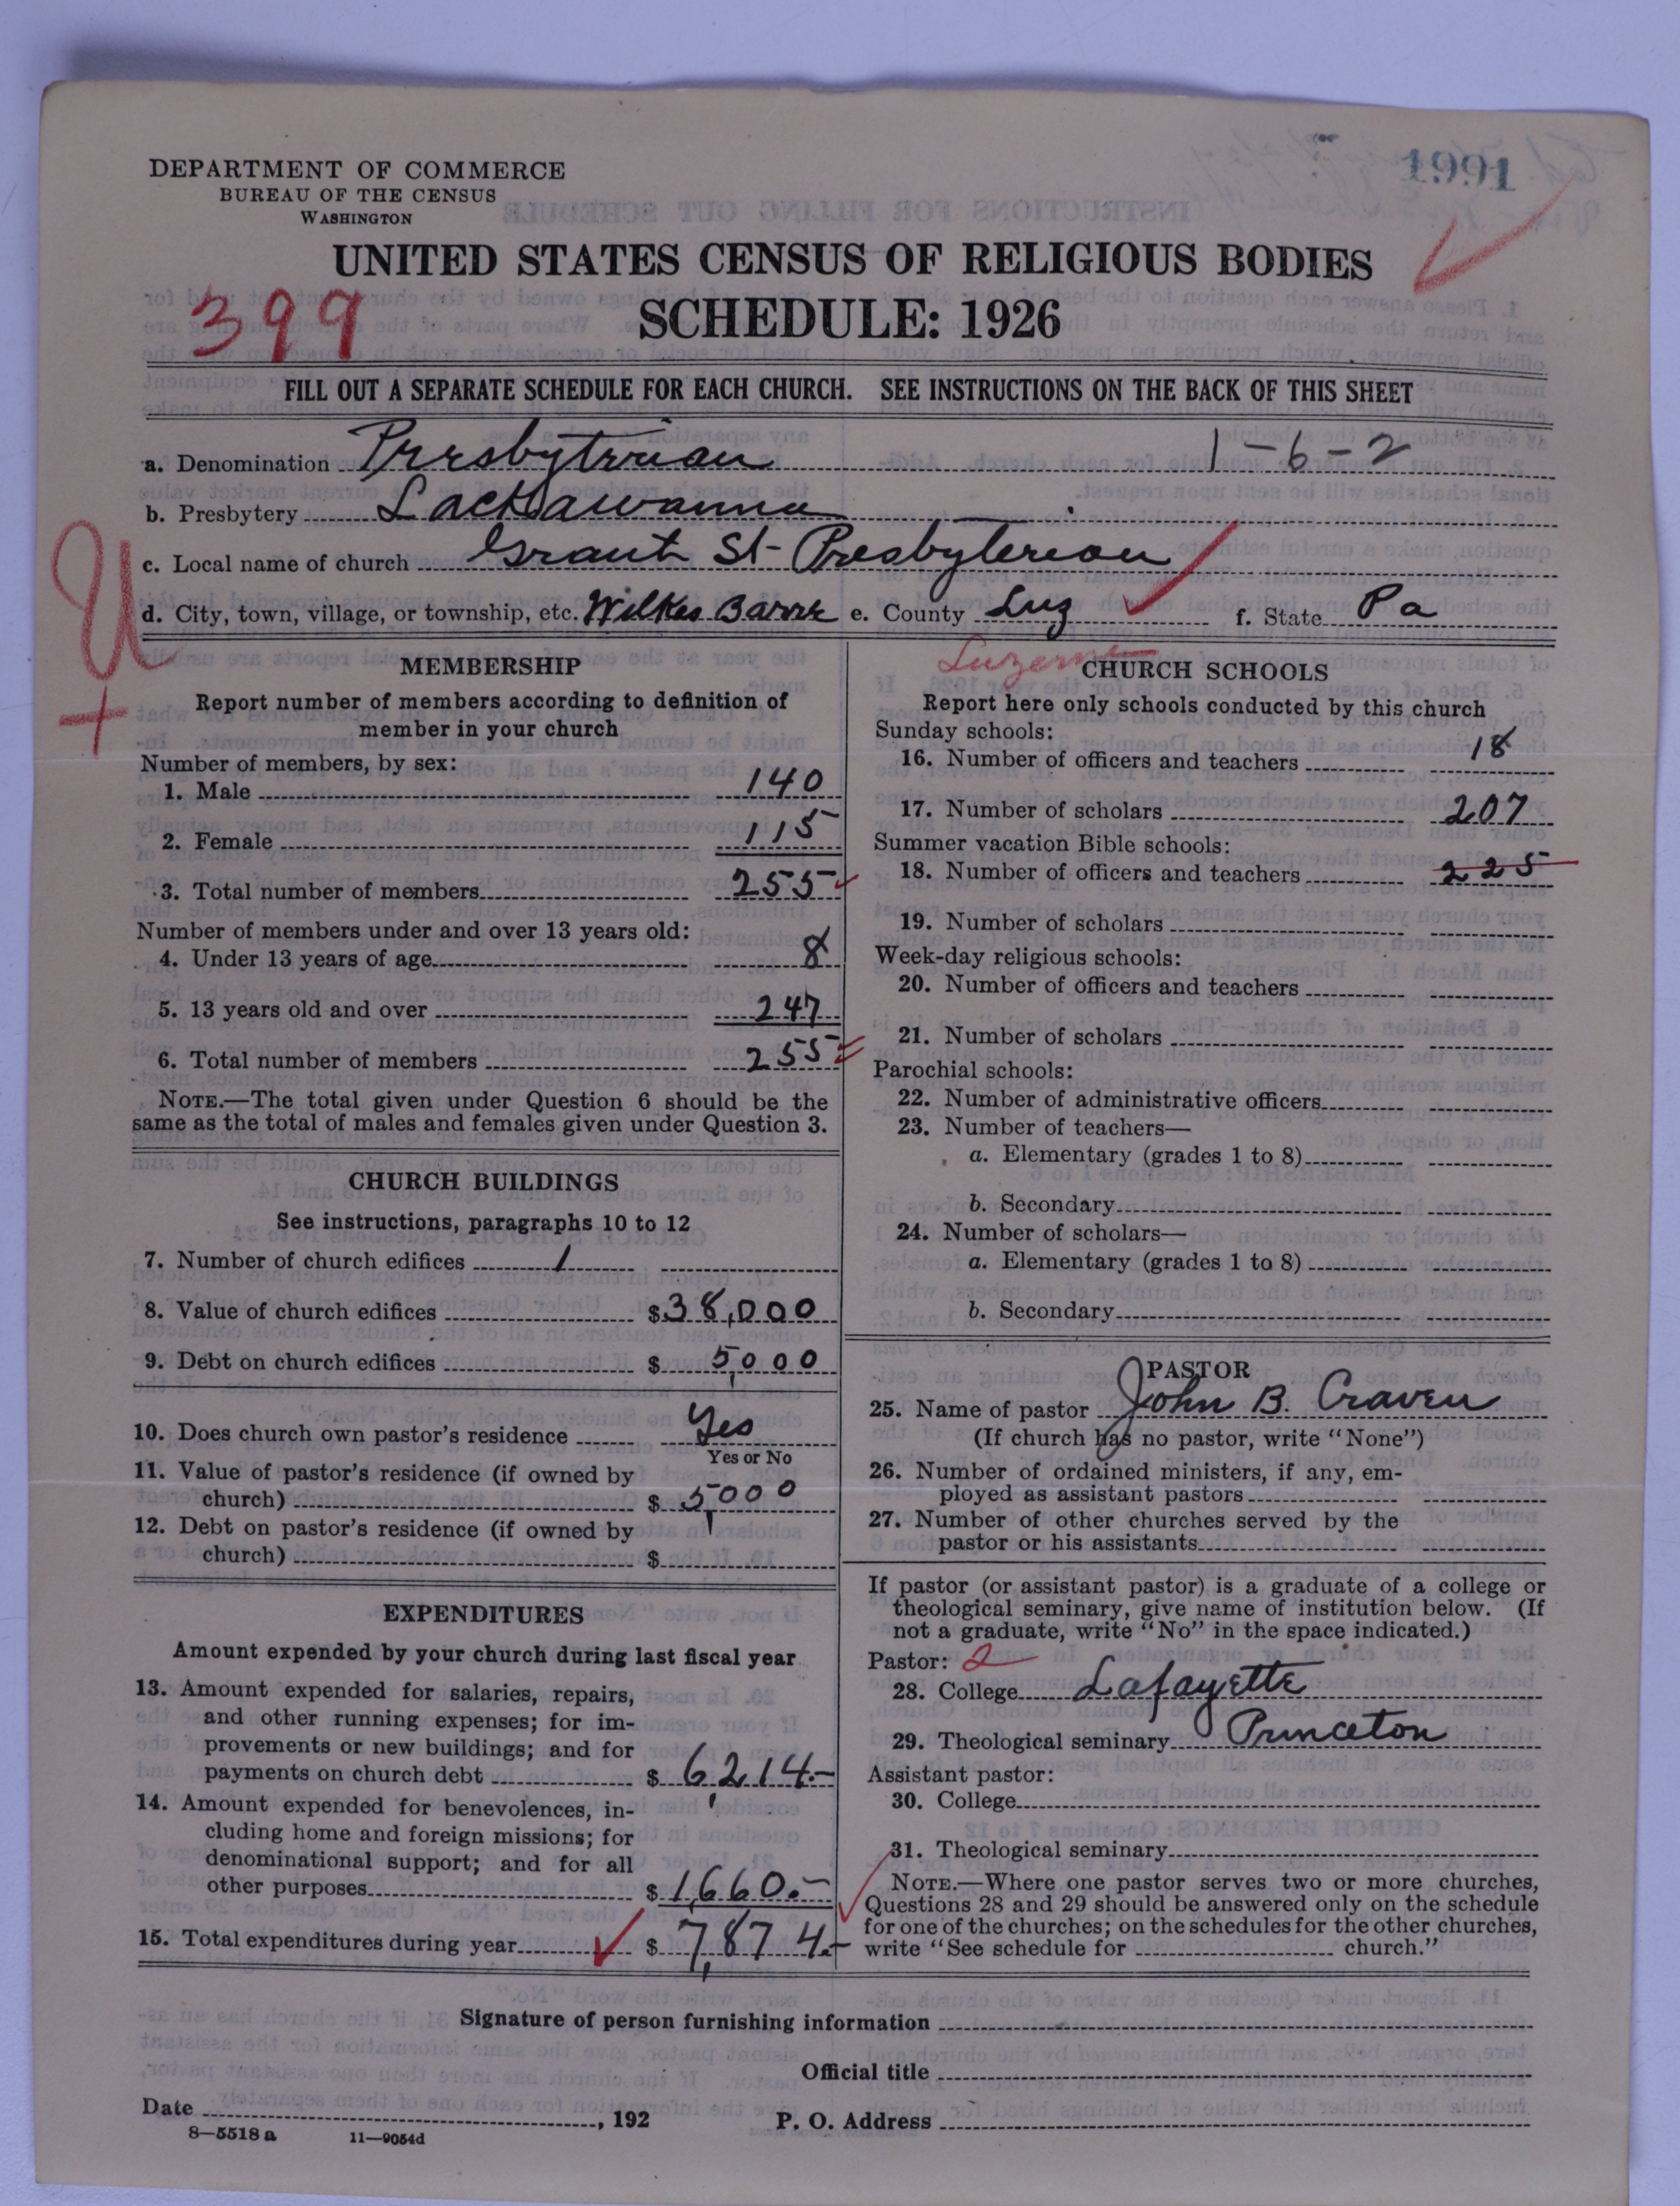 1991
DEPARTMENT OF COMMERCE
BUREAU OF THE CENSUS
WASHINGTON
UNITED STATES CENSUS OF RELIGIOUS BODIES
399
SCHEDULE: 1926
FILL OUT A SEPARATE SCHEDULE FOR EACH CHURCH. SEE INSTRUCTIONS ON THE BACK OF THIS SHEET
a. Denomination Presbyterian 1-6-2
b. Presbytery Lackawanna
c. Local name of church Grant St- Presbyterian
d. City, town, village, or township, etc. Wilkes Barre e. County Luz f. State Pa
U
+
MEMBERSHIP
Report number of members according to definition of
member in your church
Number of members, by sex:
1. Male 140
2. Female 115
3. Total number of members 255
Number of members under and over 13 years old:
4. Under 13 years of age 8
5. 13 years old and over 247
6. Total number of members 255
NOTE.—The total given under Question 6 should be the
same as the total of males and females given under Question 3.
CHURCH BUILDINGS
See instructions, paragraphs 10 to 12
7. Number of church edifices 1
8. Value of church edifices $ 38,000
9. Debt on church edifices $ 5,000
10. Does church own pastor's residence Yes
Yes or No
11. Value of pastor's residence (if owned by
church) $ 5,000
12. Debt on pastor's residence (if owned by
church) $
EXPENDITURES
Amount expended by your church during last fiscal year
13. Amount expended for salaries, repairs,
and other running expenses; for im-
provements or new buildings; and for
payments on church debt $ 6,214.-
14. Amount expended for benevolences, in-
cluding home and foreign missions; for
denominational support; and for all
other purposes $ 1,660.-
15. Total expenditures during year $ 7,874.-
Luzerne
CHURCH SCHOOLS
Report here only schools conducted by this church
Sunday schools:
16. Number of officers and teachers 18
17. Number of scholars 207
Summer vacation Bible schools:
18. Number of officers and teachers 225
19. Number of scholars
Week-day religious schools:
20. Number of officers and teachers
21. Number of scholars
Parochial schools:
22. Number of administrative officers
23. Number of teachers—
a. Elementary (grades 1 to 8)
b. Secondary
24. Number of scholars—
a. Elementary (grades 1 to 8)
b. Secondary
PASTOR
25. Name of pastor John B. Craven
(If church has no pastor, write "None")
26. Number of ordained ministers, if any, em-
ployed as assistant pastors
27. Number of other churches served by the
pastor or his assistants
If pastor (or assistant pastor) is a graduate of a college or
theological seminary, give name of institution below. (If
not a graduate, write "No" in the space indicated.)
Pastor: 2
28. College Lafayette
29. Theological seminary Princeton
Assistant pastor:
30. College
31. Theological seminary
NOTE.—Where one pastor serves two or more churches,
Questions 28 and 29 should be answered only on the schedule
for one of the churches; on the schedules for the other churches,
write "See schedule for church."
Signature of person furnishing information
Official title
Date , 192
P. O. Address
8—5518 a 11—9054d